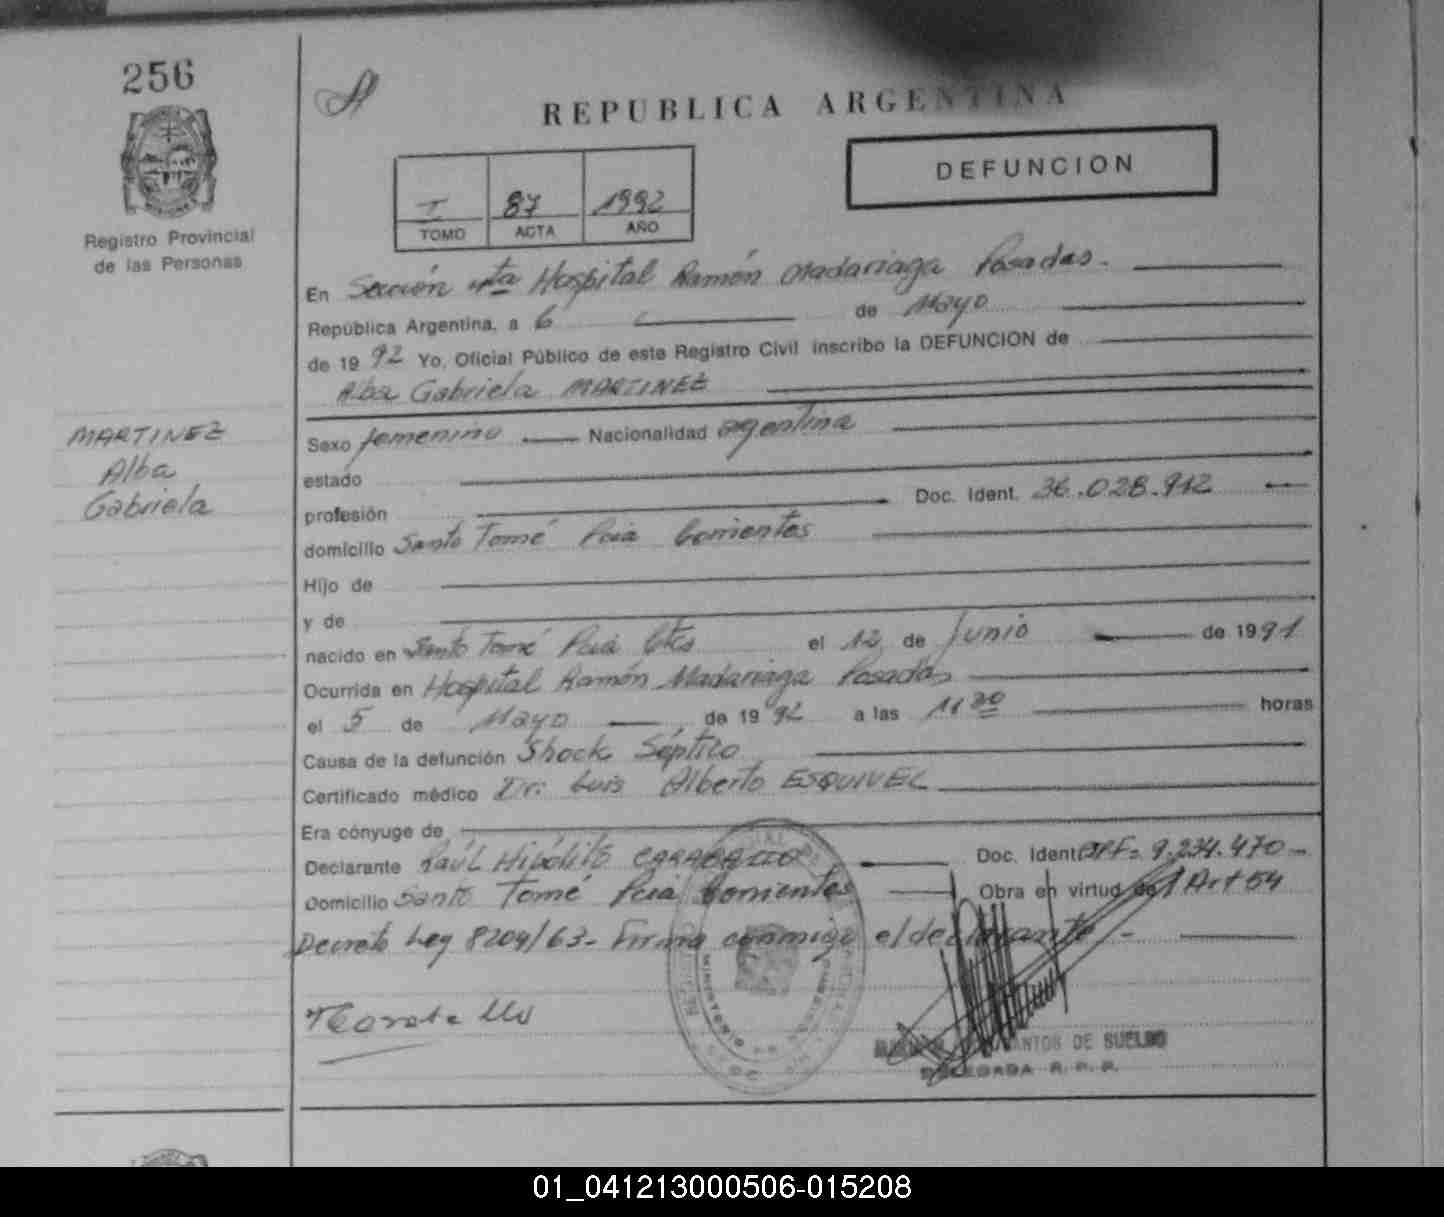 256
REPUBLICA ARGENTINA
DEFUNCION
I 87 1992
TOMO ACTA AÑO
Registro Provincial
de las Personas
En Sección 4ta Hospital Ramón Madariaga Posadas.
República Argentina, a 6 de Mayo
de 1992 Yo, Oficial Público de este Registro Civil inscribo la DEFUNCION de
Alba Gabriela MARTINEZ
MARTINEZ
Alba
Gabriela
Sexo femenino Nacionalidad argentina
estado
profesión Doc. Ident. 36.028.912
domicilio Santo Tomé Pcia Corrientes
Hijo de
y de
nacido en Santo Tomé Pcia Ctes el 12 de Junio de 1991
Ocurrida en Hospital Ramón Madariaga Posadas
el 5 de Mayo de 1992 a las 11 30 horas
Causa de la defunción Shock Séptico
Certificado médico Dr: Luis Alberto ESQUIVEL
Era cónyuge de
Declarante Raúl Hipólito Doc. Ident. 9.234.470-
Domicilio Santo Tomé Pcia Corrientes Obra en virtud de Art 54
Decreto Ley 8204/63- Firma conmigo el declarante-
MINISTERIO
SANTOS DE SUELDO
DELEGADA R. P. P.
01_041213000506-015208